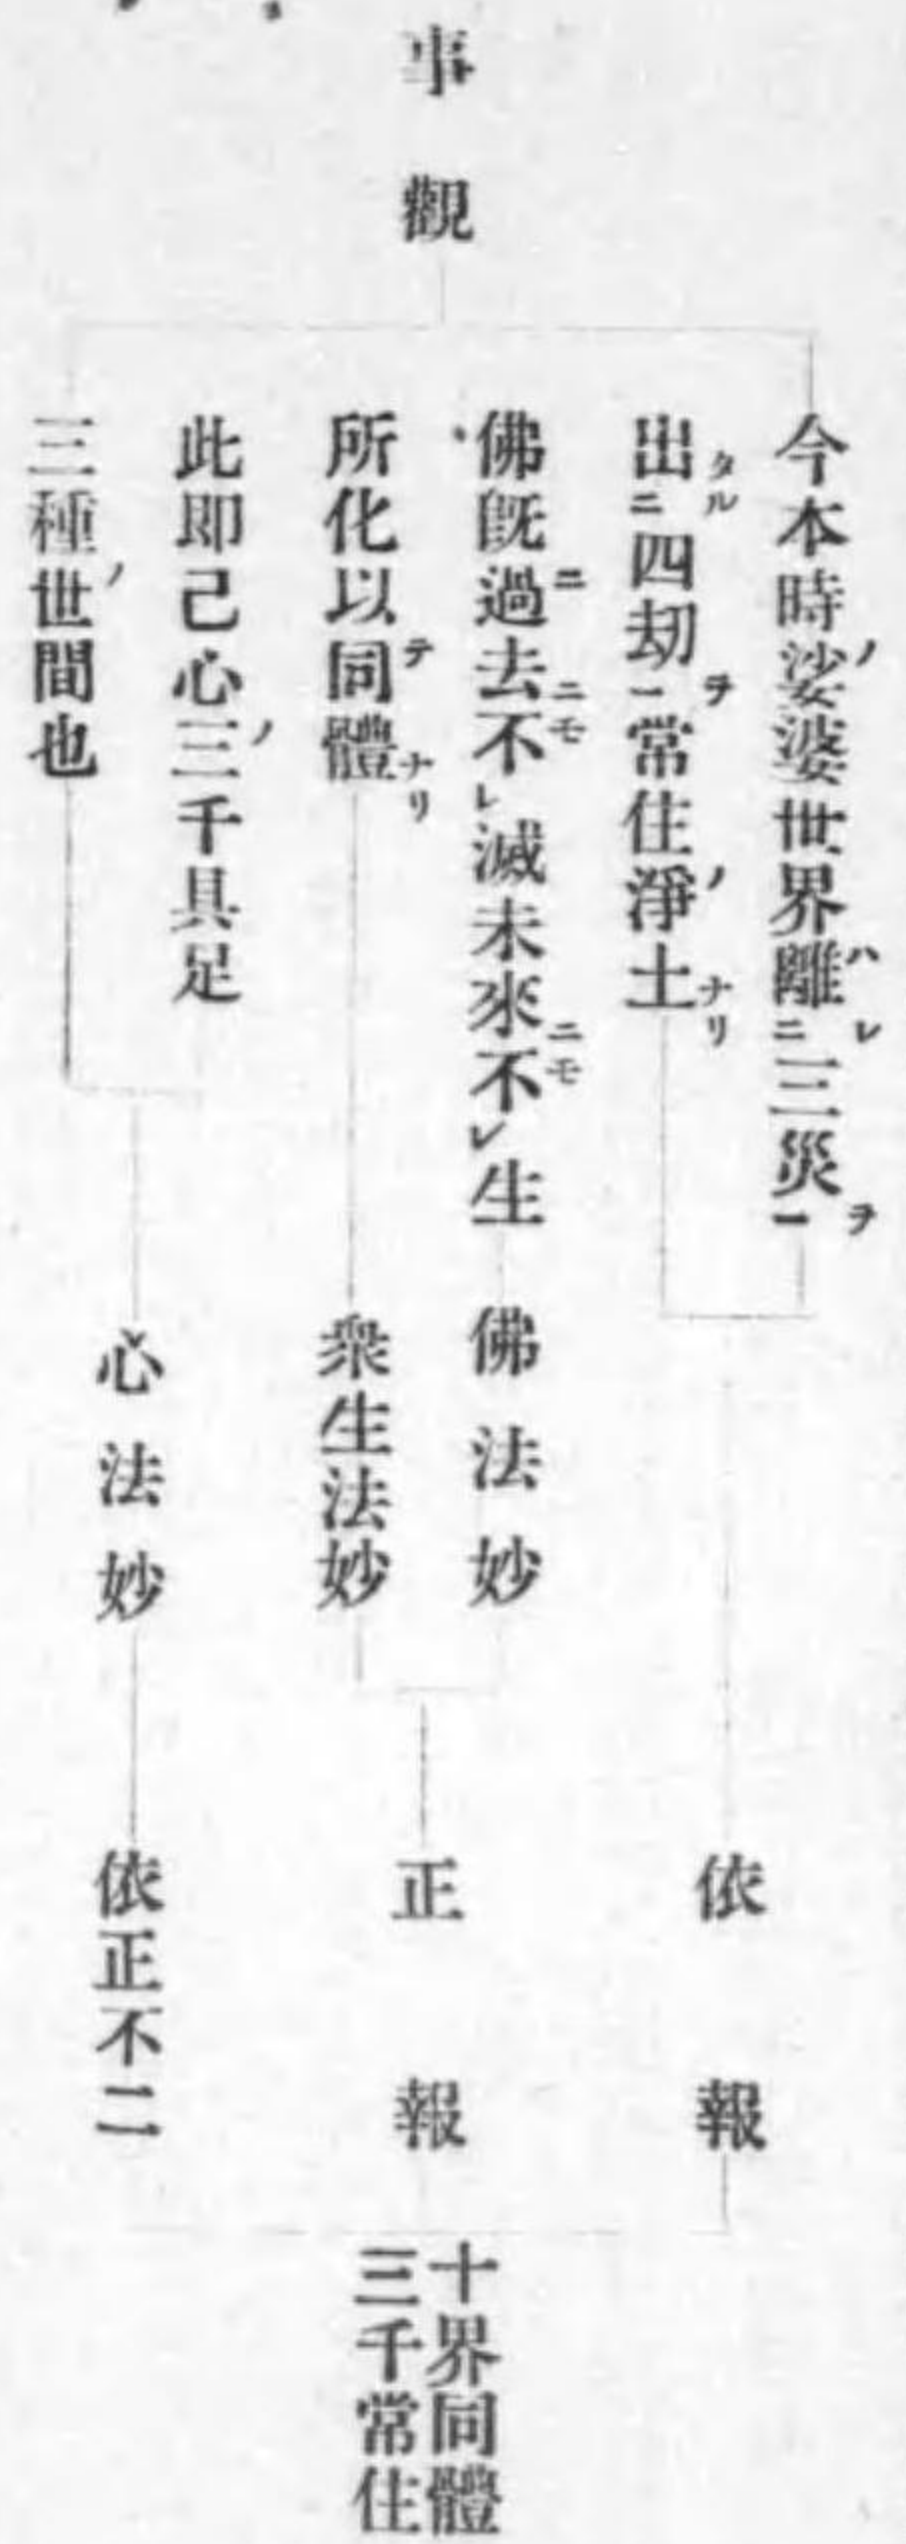 事觀
今本時ノ娑婆世界ハ離レ㆓三災ヲ㆒
出タル㆓四劫ヲ㆒常住ノ淨土ナリ
佛既ニ過去ニモ不㆑滅未來ニモ不㆑生
所化以テ同體ナリ
此即己心ノ三千具足
三種ノ世間也
佛法妙
衆生法妙
心法妙
依報
正報
依正不二
十界同體
三千常住